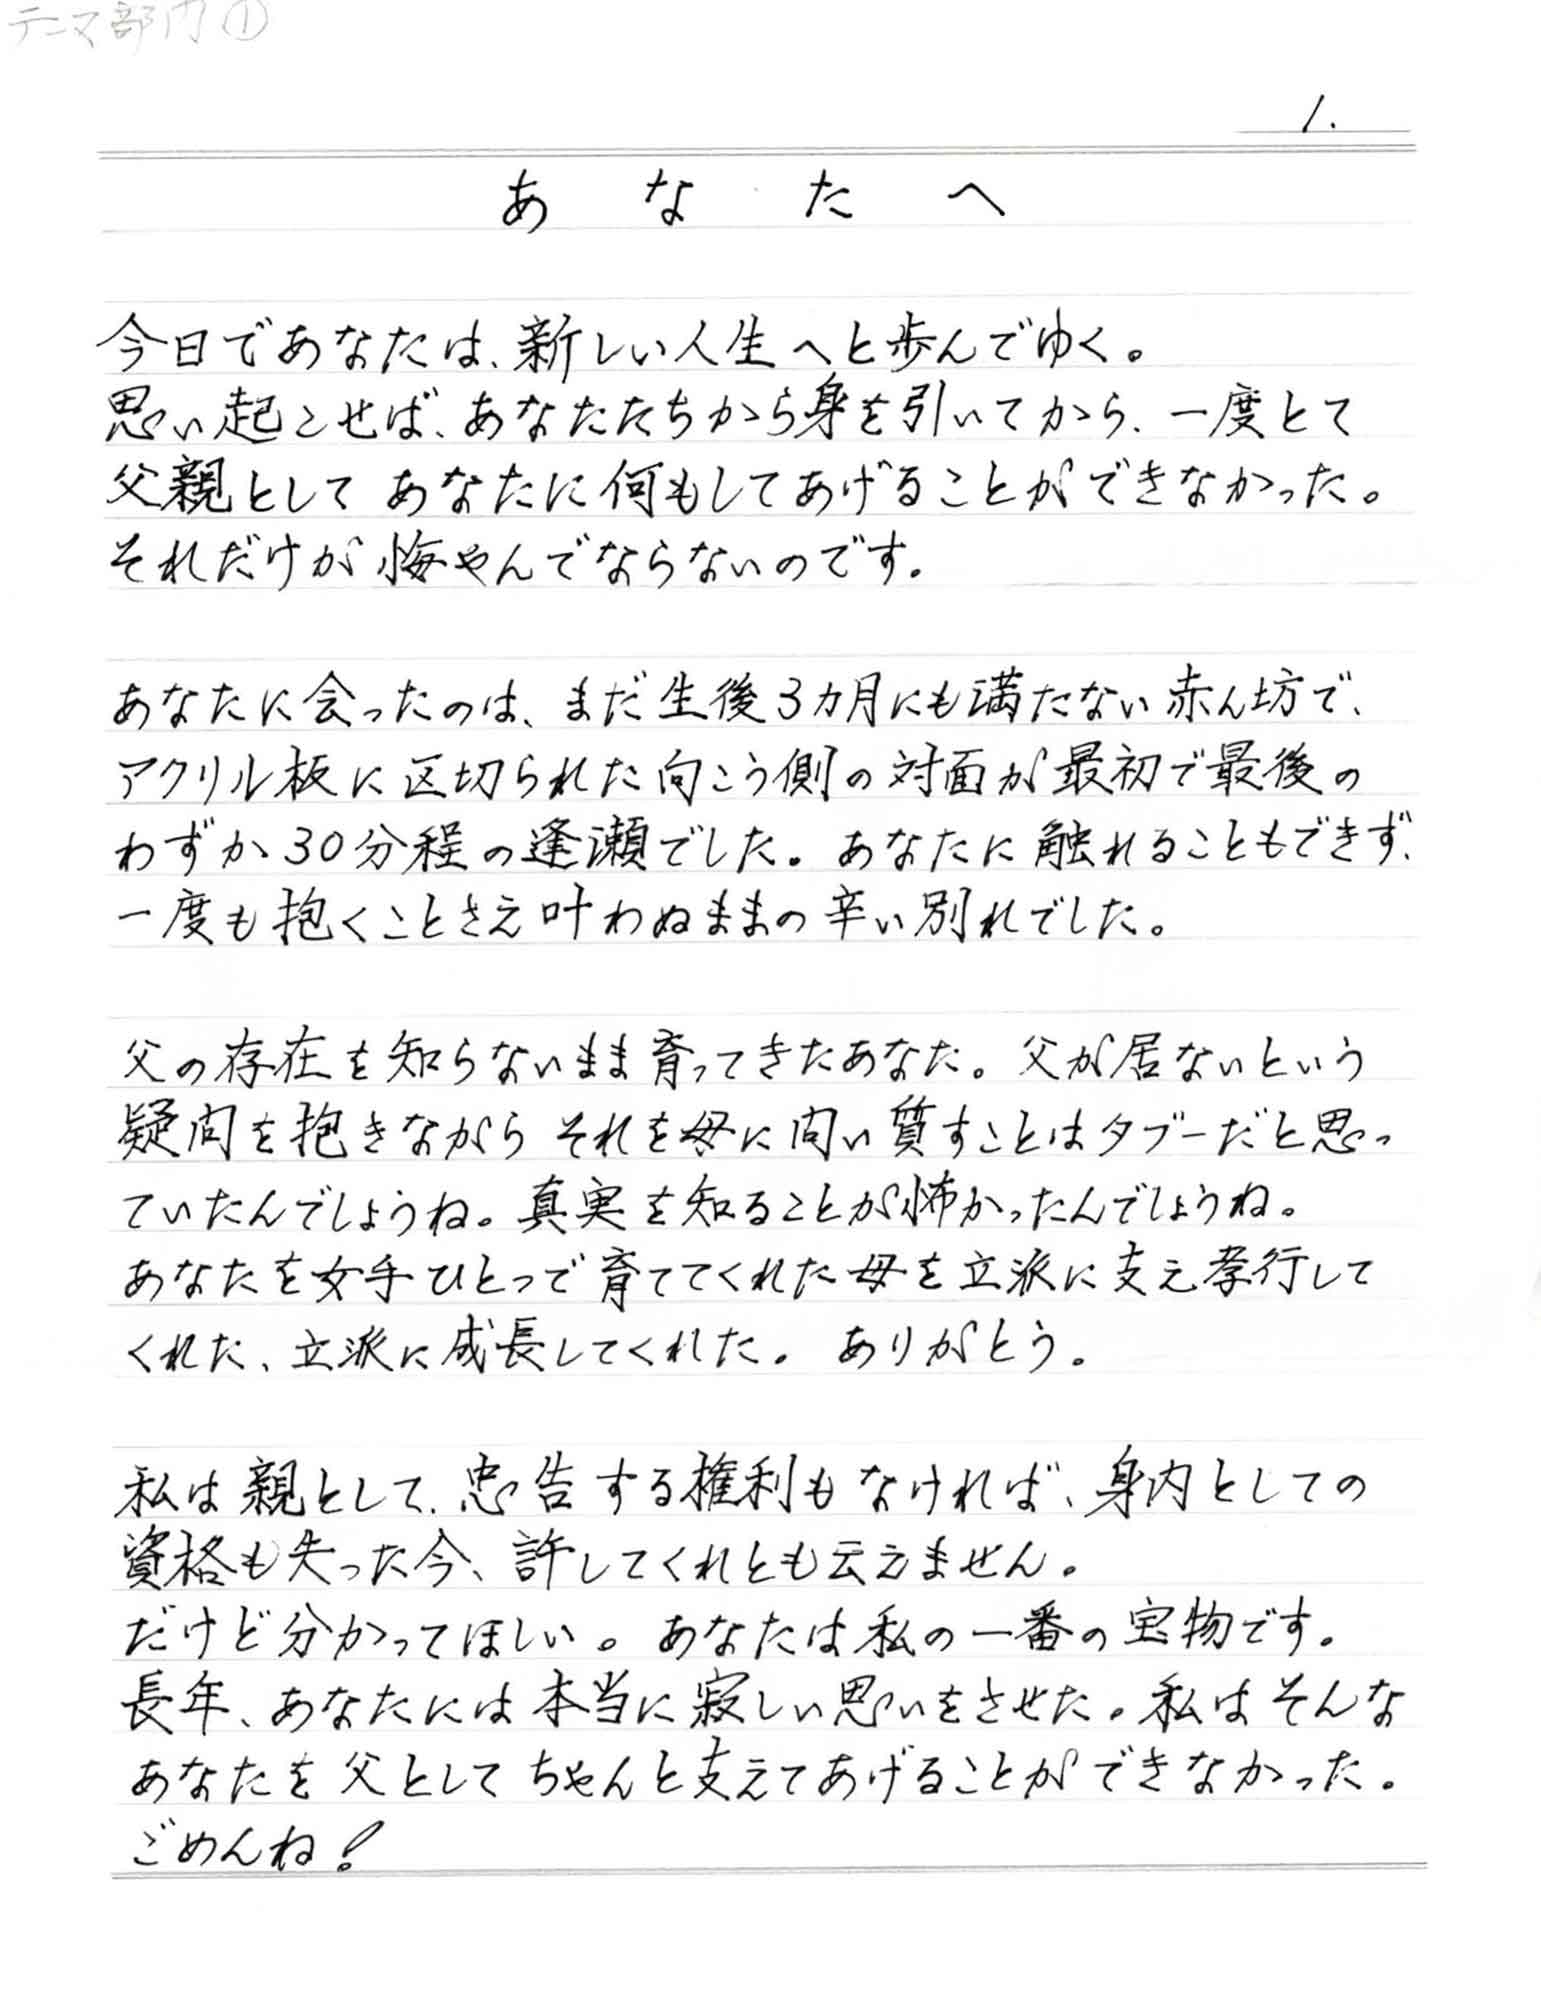 テーマ部門①
1.
あなたへ
今日であなたは、新しい人生へと歩んでゆく。
思い起こせば、あなたたちから身を引いてから、一度とて
父親として あなたに何もしてあげることができなかった。
それだけが悔やんでならないのです。
あなたに会ったのは、まだ生後3カ月にも満たない赤ん坊で、
アクリル板に区切られた向こう側の対面が最初で最後の
わずか30分程の逢瀬でした。あなたに触れることもできず、
一度も抱くことさえ叶わぬままの辛い別れでした。
父の存在を知らないまま育ってきたあなた。父が居ないという
疑問を抱きながら それを母に問い質すことはタブーだと思っ
ていたんでしょうね。真実を知ることが怖かったんでしょうね。
あなたを女手ひとつで育ててくれた母を立派に支え孝行して
くれた、立派に成長してくれた。ありがとう。
私は親として、忠告する権利もなければ、身内としての
資格も失った今、許してくれとも云えません。
だけど分かってほしい。あなたは私の一番の宝物です。
長年、あなたには本当に寂しい思いをさせた。私はそんな
あなたを父としてちゃんと支えてあげることができなかった。
ごめんね!